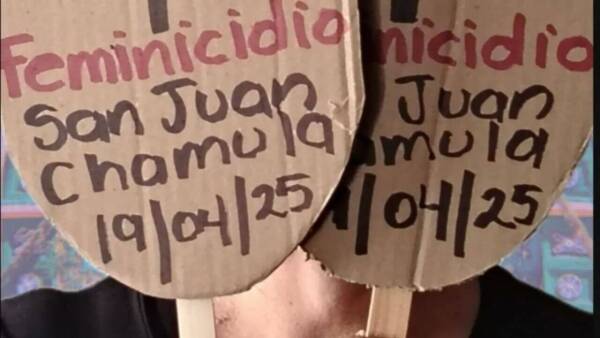 Feminicidio
San Juan
Chamula
19/04/25
nicidio
Juan
mula
/04/25